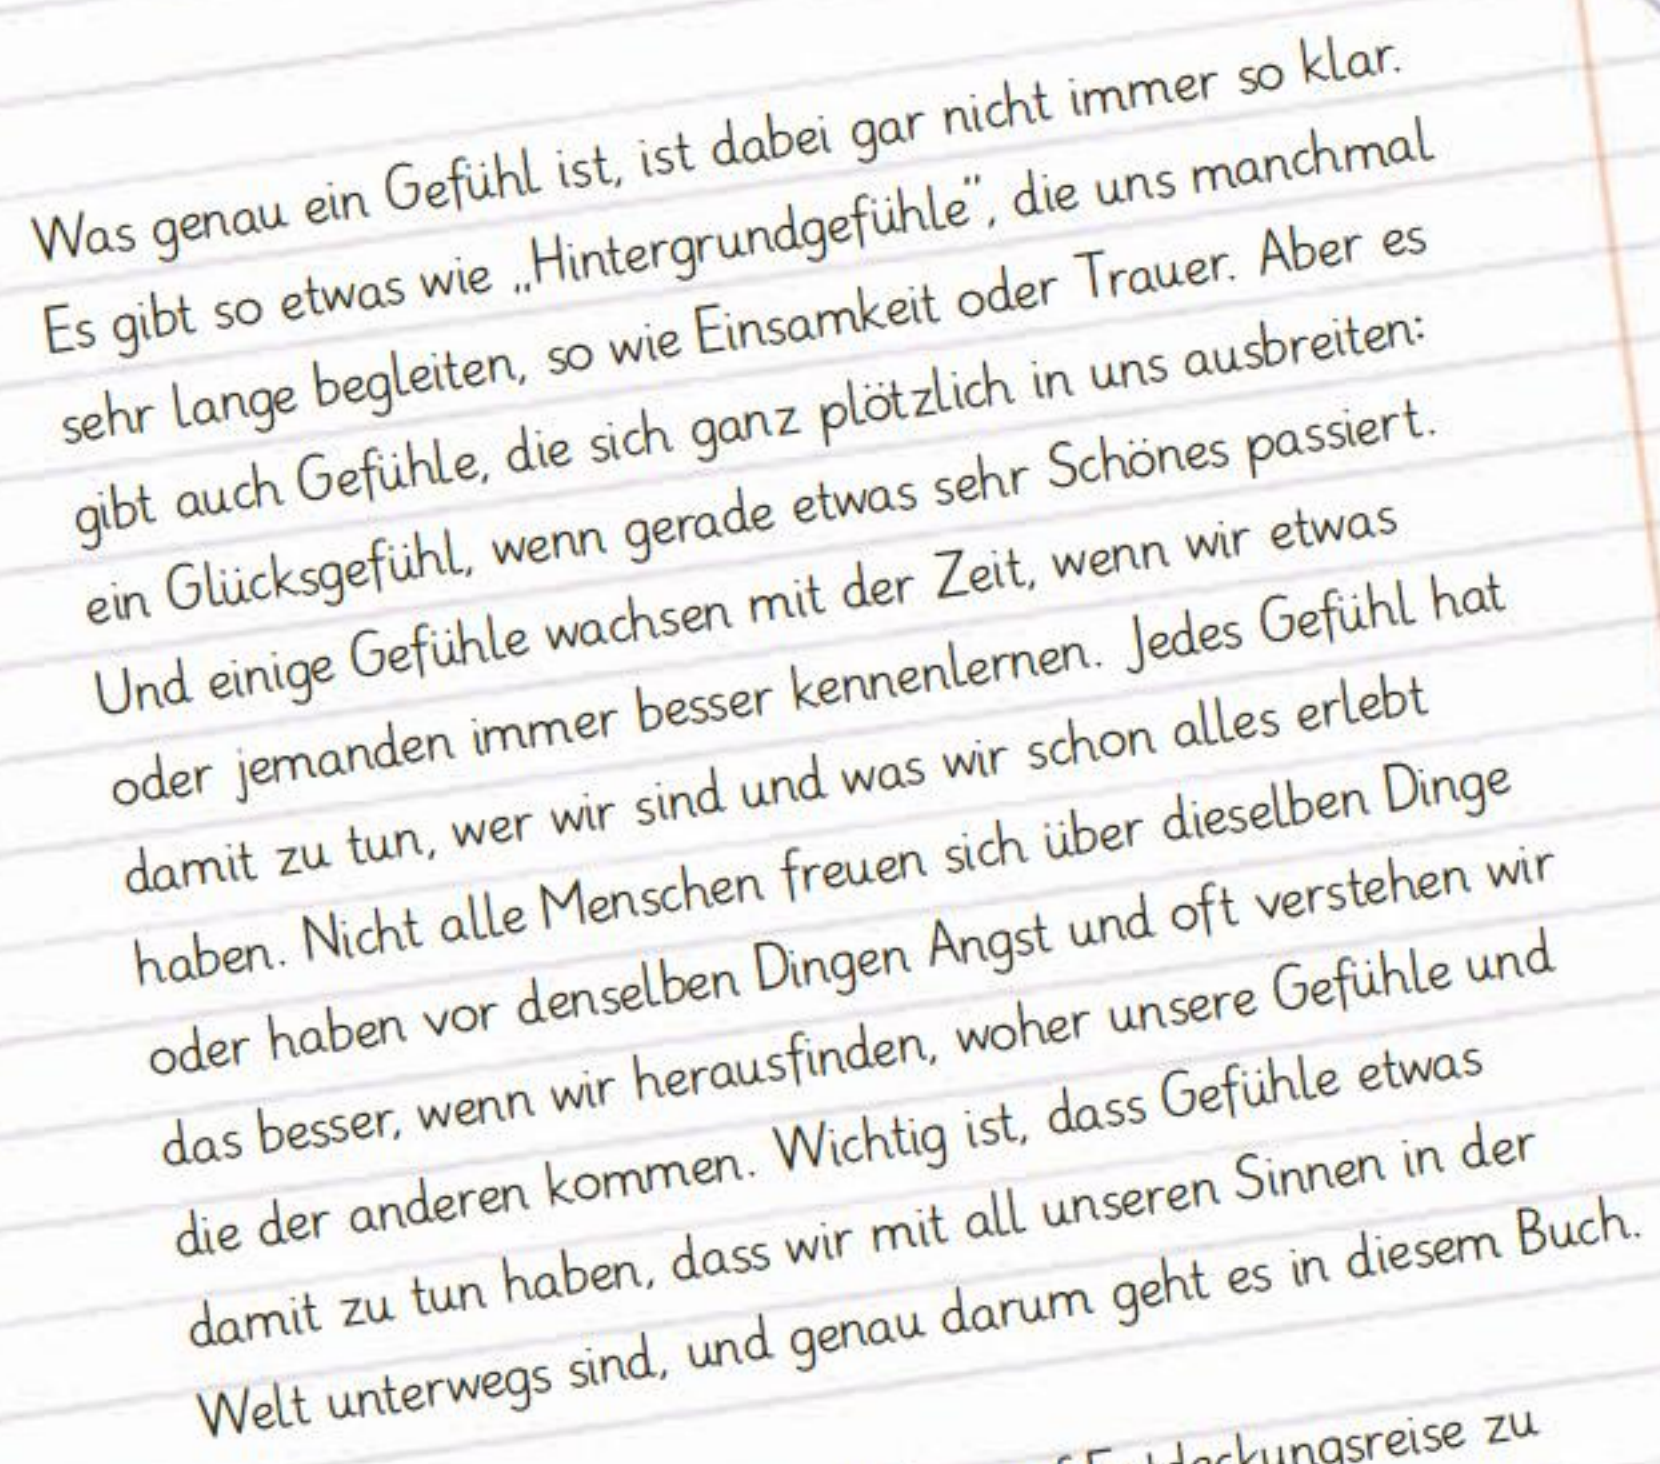 Was genau ein Gefühl ist, ist dabei gar nicht immer so klar.
Es gibt so etwas wie „Hintergrundgefühle“, die uns manchmal
sehr lange begleiten, so wie Einsamkeit oder Trauer. Aber es
gibt auch Gefühle, die sich ganz plötzlich in uns ausbreiten:
ein Glücksgefühl, wenn gerade etwas sehr Schönes passiert.
Und einige Gefühle wachsen mit der Zeit, wenn wir etwas
oder jemanden immer besser kennenlernen. Jedes Gefühl hat
damit zu tun, wer wir sind und was wir schon alles erlebt
haben. Nicht alle Menschen freuen sich über dieselben Dinge
oder haben vor denselben Dingen Angst und oft verstehen wir
das besser, wenn wir herausfinden, woher unsere Gefühle und
die der anderen kommen. Wichtig ist, dass Gefühle etwas
damit zu tun haben, dass wir mit all unseren Sinnen in der
Welt unterwegs sind, und genau darum geht es in diesem Buch.
Entdeckungsreise zu